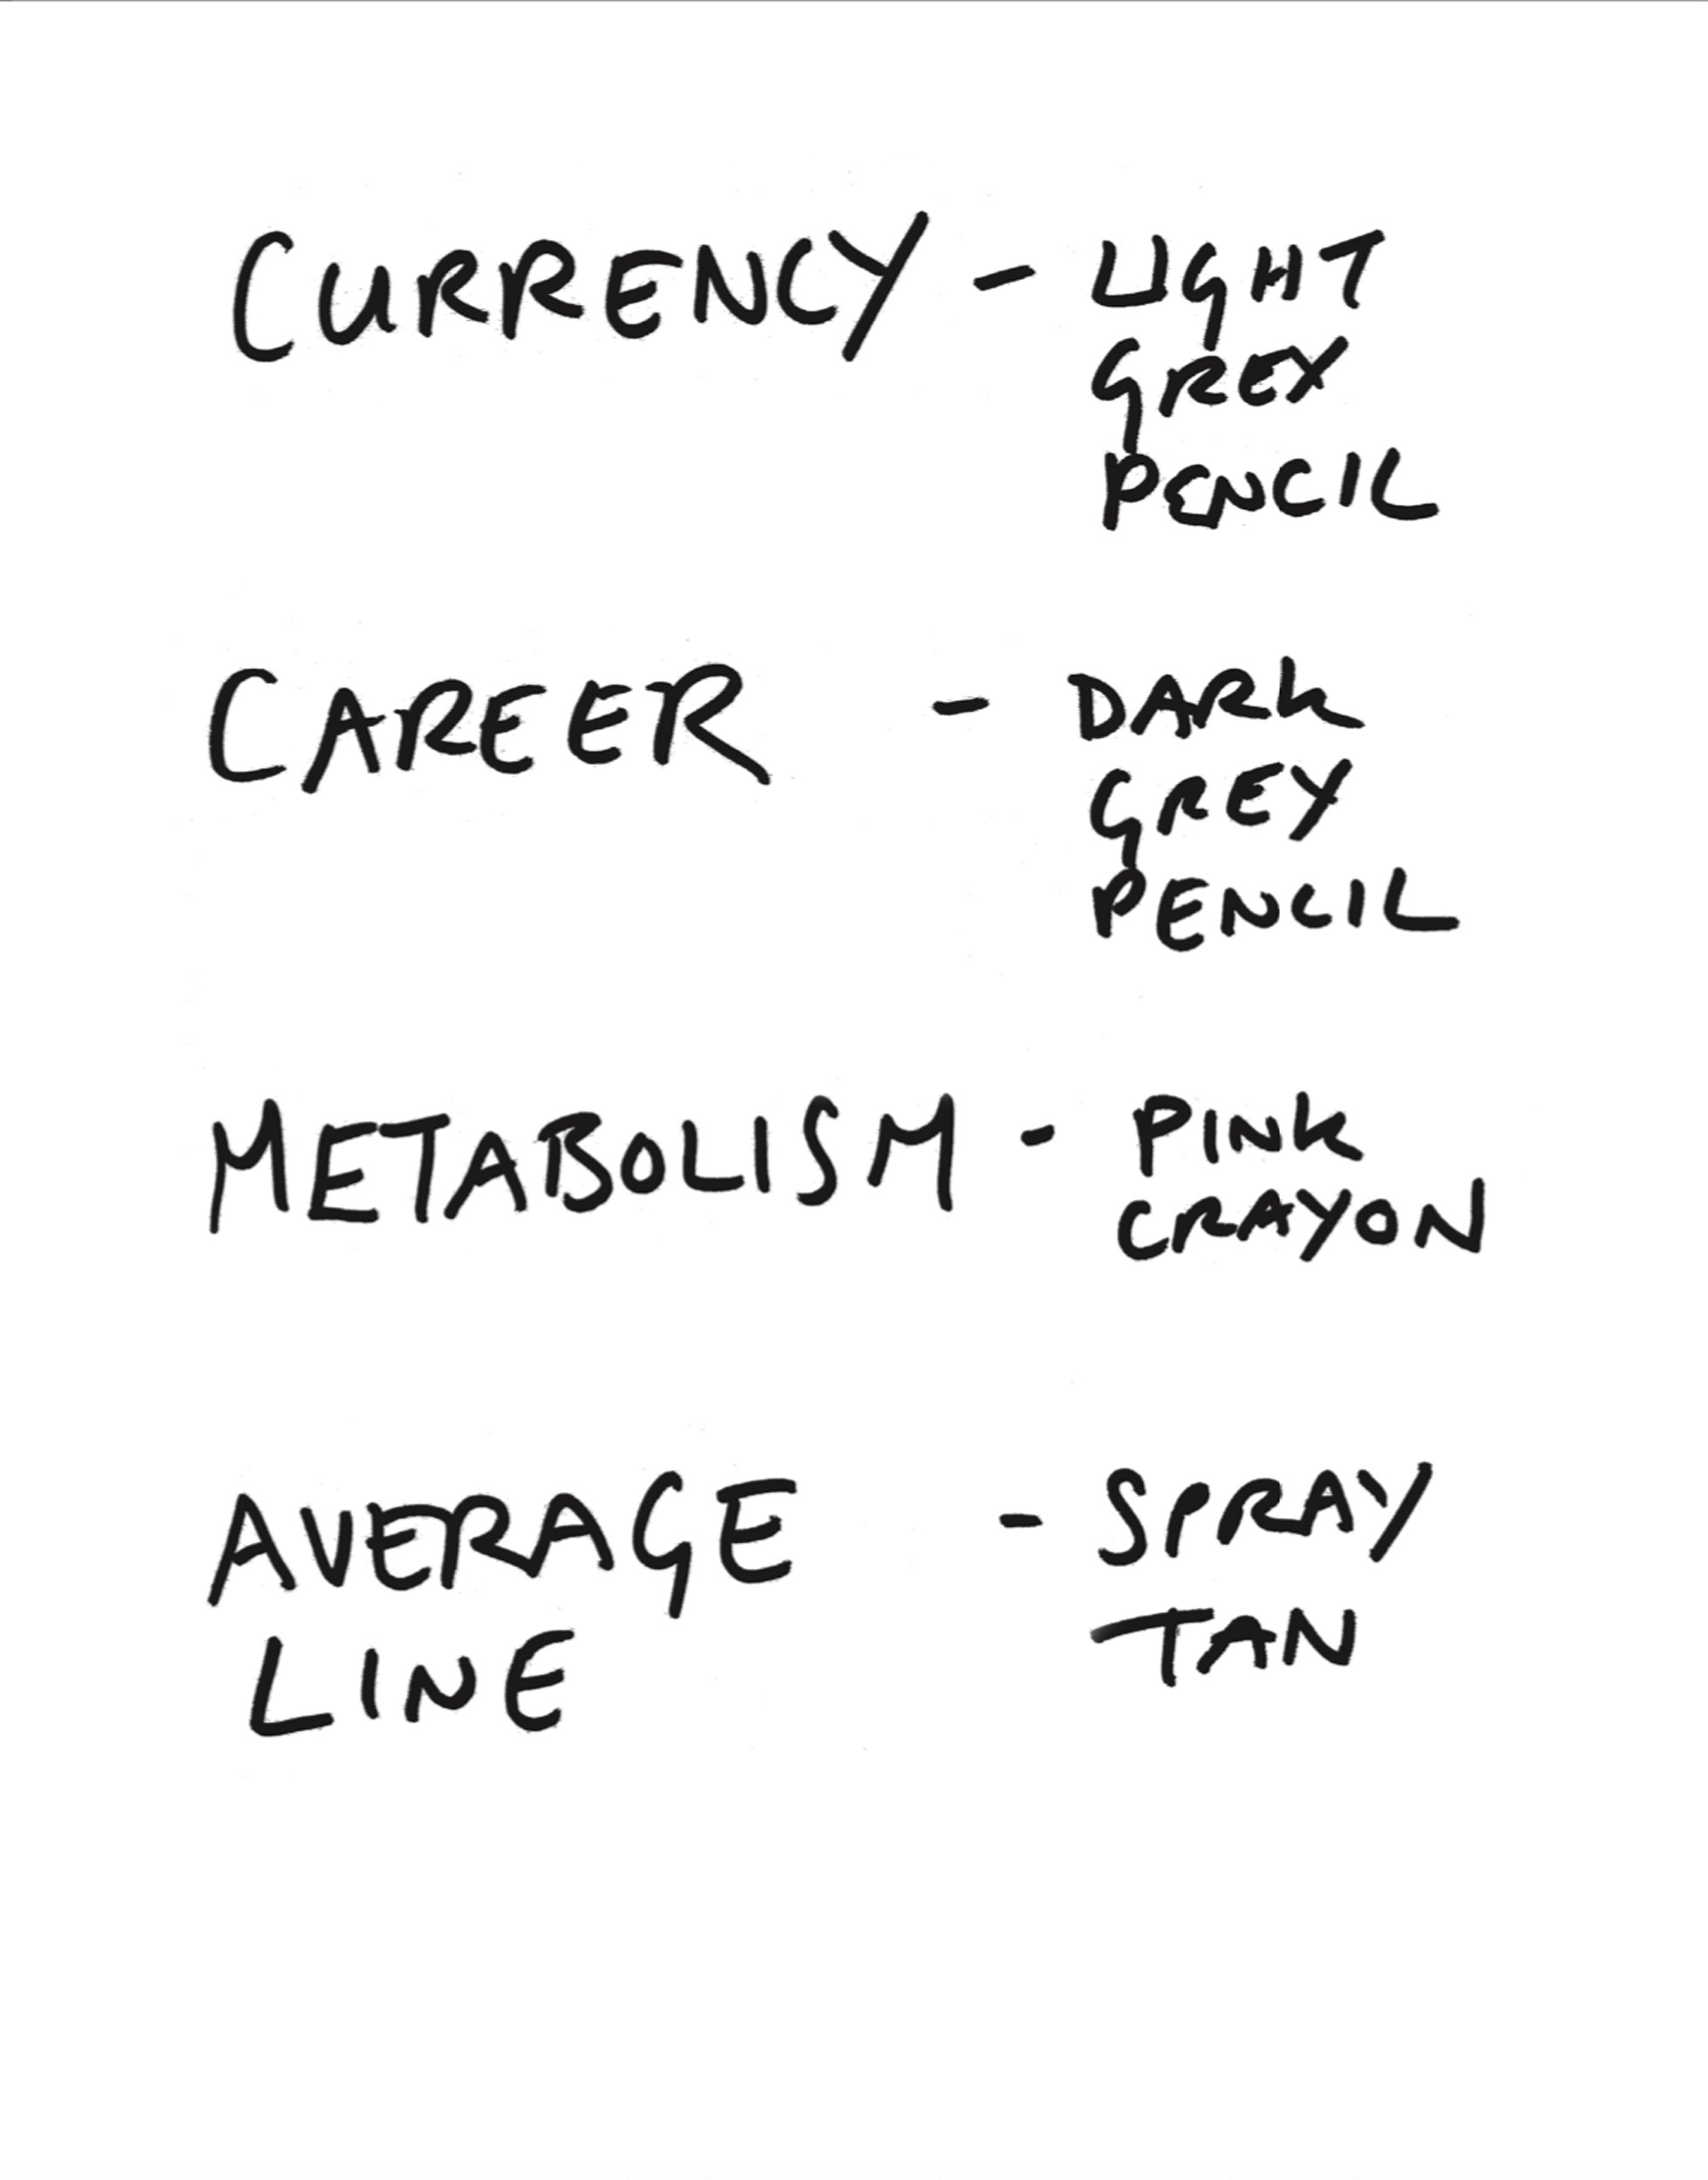 CURRENCY - LIGHT
GREY
PENCIL
CAREER - DARK
GREY
PENCIL
METABOLISM - PINK
CRAYON
AVERAGE - SPRAY
LINE TAN